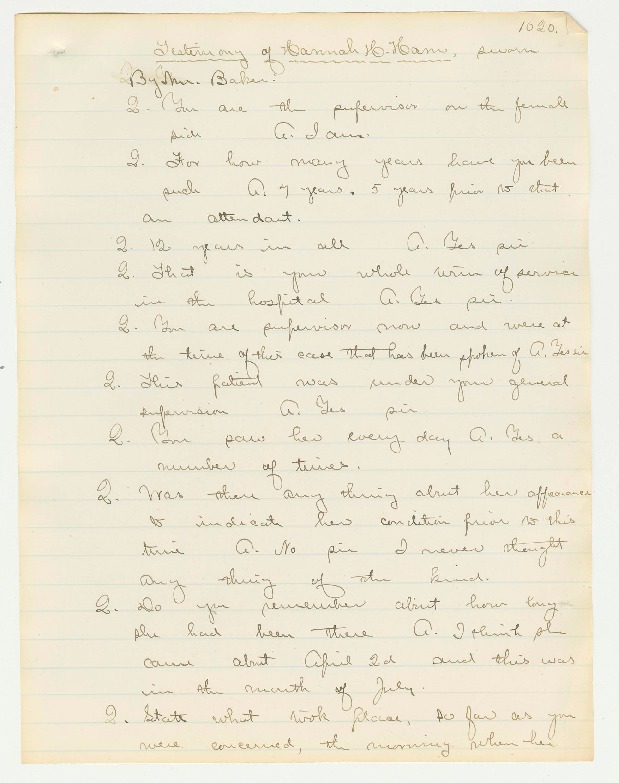 1020.
Testimony of Hannah H. Ham, sworn
By Mr. Baker.
Q. You are the supervisor on the female
side A. I am.
Q. For how many years have you been
such A. 7 years. 5 years prior to that
an attendant.
Q. 12 years in all A. Yes sir
Q. That is your whole term of service
in the hospital A. Yes sir.
Q. You are supervisor now and were at
the time of this case that has been spoken of A. Yes sir
Q. This patient was under your general
supervision A. Yes sir
Q. You saw her every day A. Yes a
number of times.
Q. Was there any thing about her appearance
to indicate her condition prior to this
time A. No sir I never thought
any thing of the kind.
Q. Do you remember about how long
she had been there A. I think she
came about April 2d and this was
in the month of July.
Q. State what took place, so far as you
were concerned, the morning when her